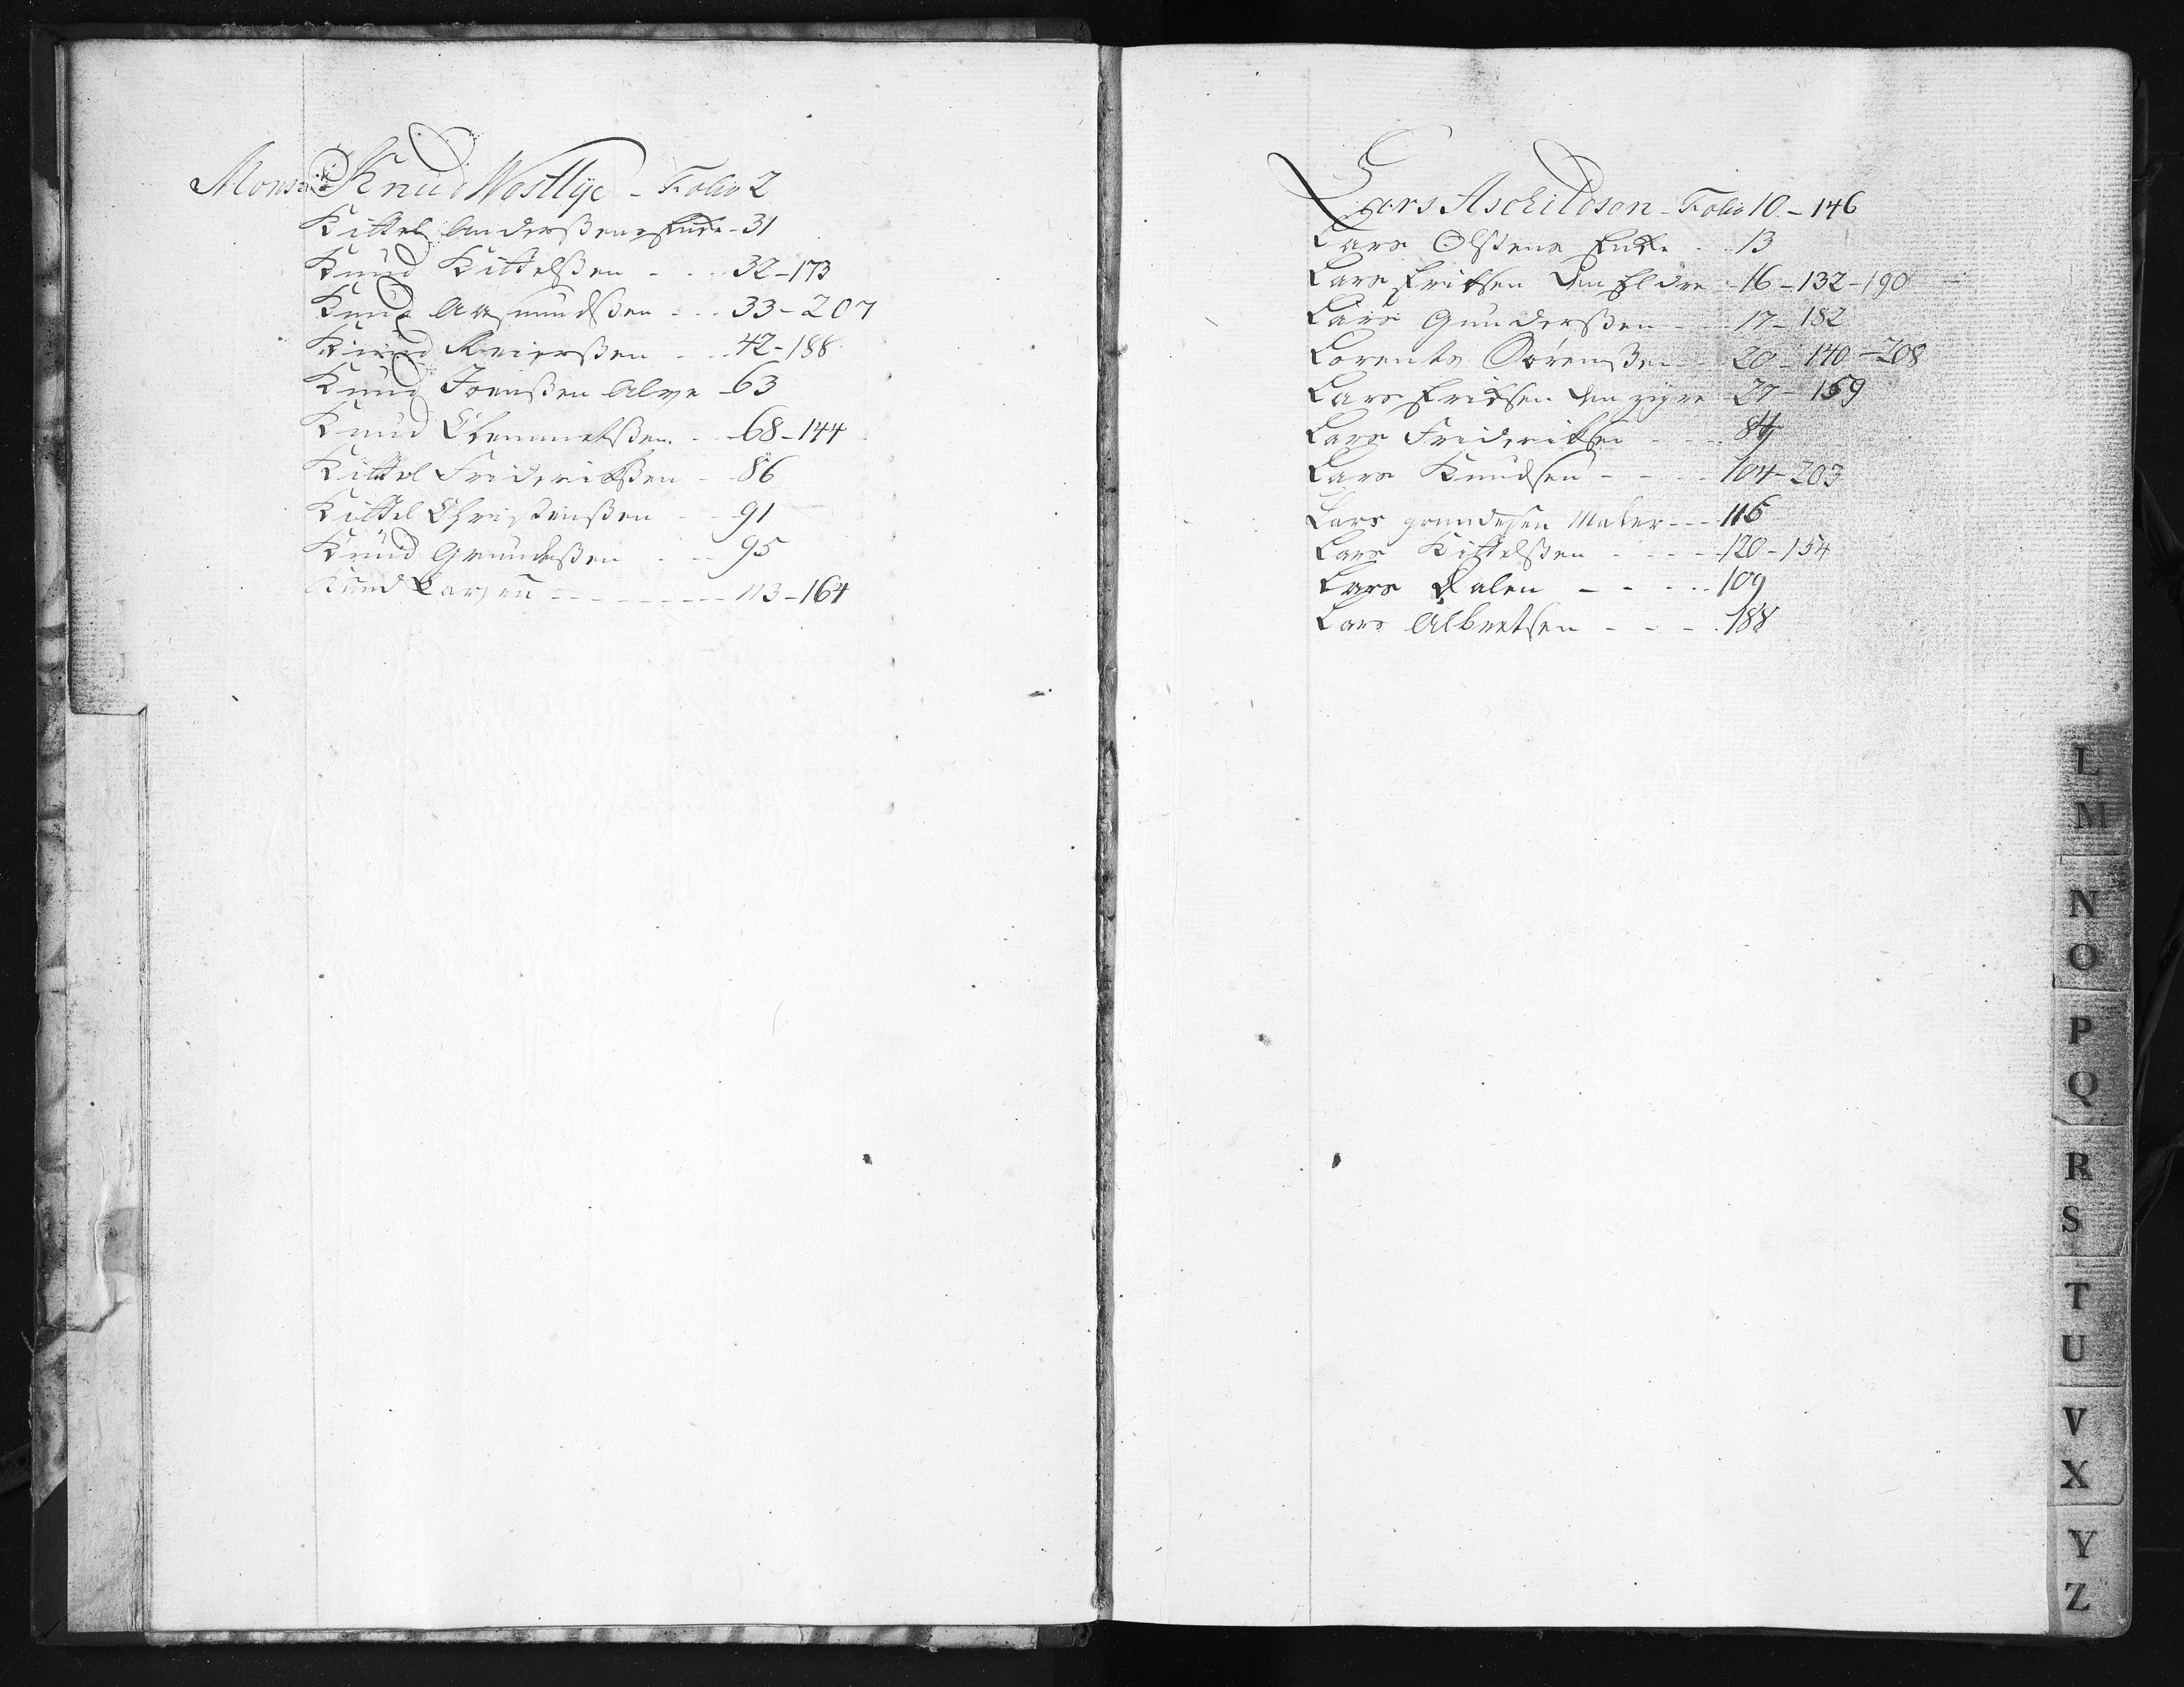 Monsr Knud Wostlye - Folio 2
Kittel Anderßens Enke - 31
Knud Kittelßen - - - 32 - 173
Knud Aasmundßen - - - 33 - 207
Knud Reierßen - - - 42 - 188
Knud Joenßen Alve - 63
Knud Clemmetßen - - 68 - 144
Kittel Friderikßen - 86
Kittel Christenßen - - 91
Knud Grundeßen - - - 95
Knud Larsen - - - - - - - 113 - 164
Lars Aschildsen - Folio 10 - 146
Lars Olsens Enke - - 13
Lars Eriksen den Eldre - 16 - 132 - 190
Lars Gunderßen - - 17 - 182
Lorents Sørenßen - - 20 - 140 - 208
Lars Eriksen den yngre - 27 - 159
Lars Frideriksen - - -
Lars Knudsen - - - - 104 - 203
Lars Grundesen Maler - - - 116
Lars Kittelßen - - - - 120 - 154
Lars Dalen - - - - - 109
Lars Albretsen - - - - 188
L
M
N
O
P
Q
R
S
T
U
V
X
Y
Z